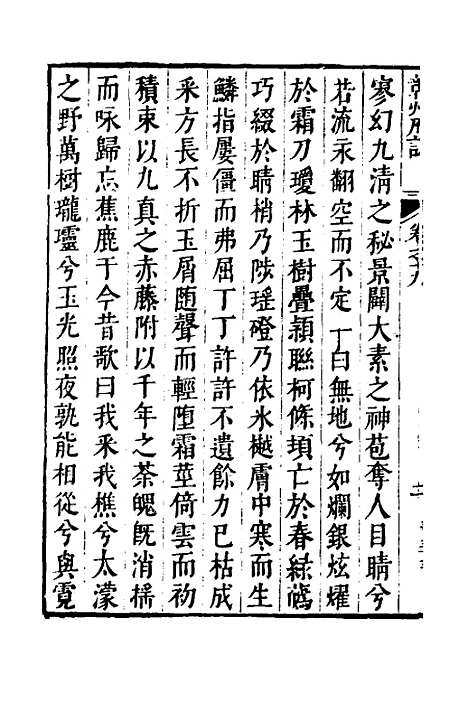 贛州府志
卷之十九
寥幻九清之秘景闢大素之神苞奪人目睛兮
若流汞翻空而不定一白無地兮如爛銀炫燿
於霜刀瓊林玉樹疊穎聯柯倏頃亡於春綠鶯
巧綴於晴梢乃陟瑶磴乃依氷樾膚中寒而生
鱗指屢僵而弗屈丁丁許許不遺餘力已枯成
采方長不折玉屑随聲而輕堕霜莖倚雲而礿
積束以九真之赤藤附以千年之茶魄旣消摇
而咏歸忘蕉鹿于今昔歌曰我采我樵兮太濛
之野萬樹瓏璁兮玉光照夜孰能相從兮與霓